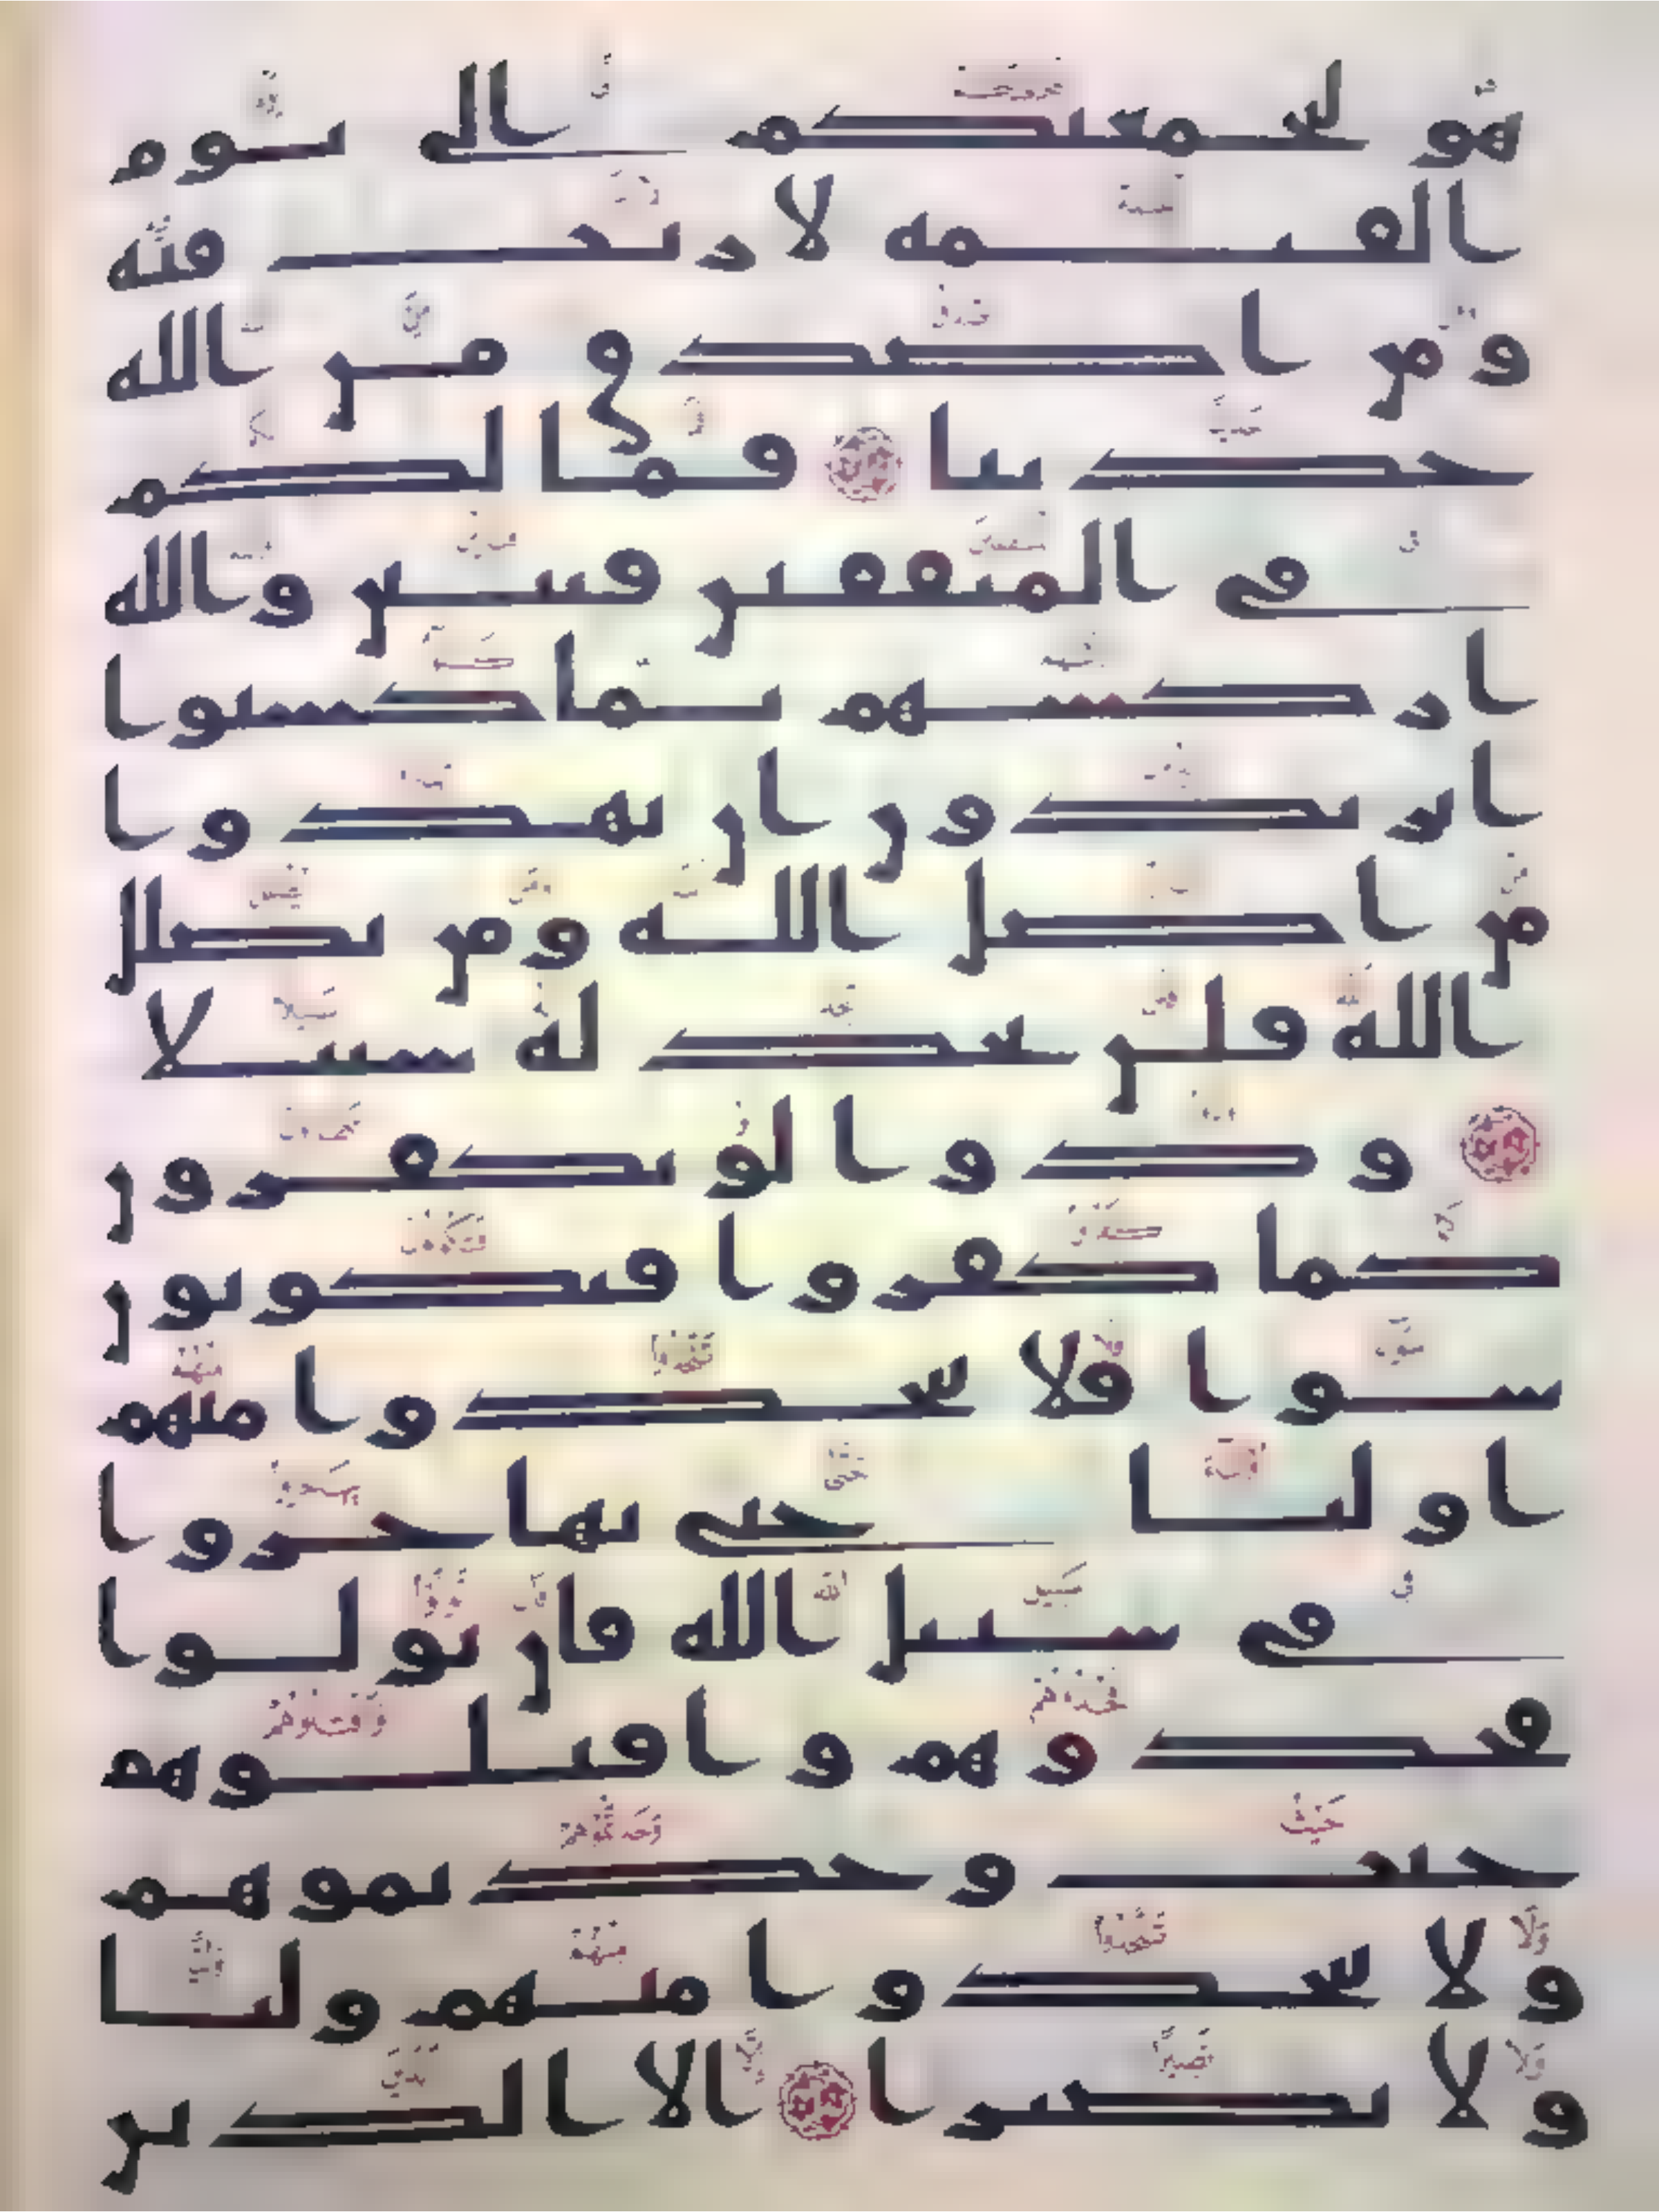 هو ليجمعنكم الى يوم
القيمه لا ريب فيه
ومن اصدق من الله
حديثا فما لكم
في المنفقين فئتين والله
اركسهم بما كسبوا
اتريدون ان تهدوا
من اضل الله ومن يضلل
الله فلن تجد له سبيلا
ودوا لو تكفرون
كما كفروا فتكونون
سوا فلا تتخذوا منهم
اوليا حتى يهاجروا
في سبيل الله فان تولوا
فخذوهم واقتلوهم
حيث وجدتموهم
ولا تتخذوا منهم وليا
ولا نصيرا الا الذين